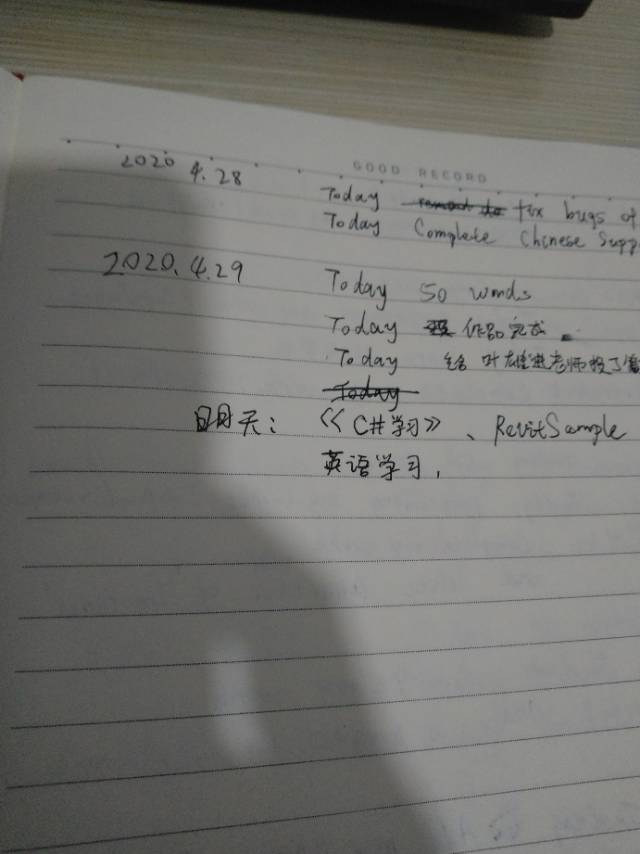 GOOD RECORD
2020 4.28 Today fix bugs of
Today Complete Chinese Supp
2020.4.29 Today 50 words
Today 作品完成
Today 给叶雄进老师投了
Today
明天: 《C#学习》、RevitSample
英语学习,